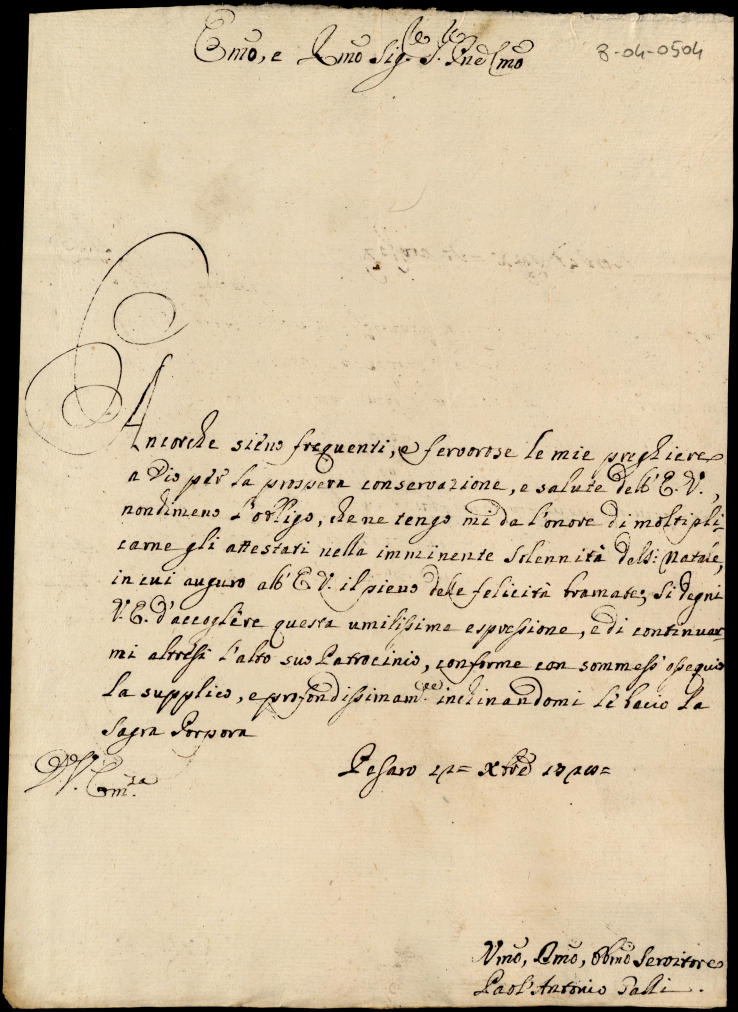 Emo, e Rmo Sig.re S. Pne Cmo
8-04-0504
Ancorche sieno frequenti, e fervorose le mie preghiere
a Dio per la prospera conservazione, e salute dell' E. V.,
nondimeno l'obligo, che ne tengo mi da l'onore di moltipli
carne gli attestati nella imminente Solennità del S: Natale,
in cui auguro all' E. V. il pieno delle felicità bramate; Si degni
V. E. d'accogliere questa umilissima espressione, e di continuar
mi altresì l'alto suo Patrocinio, conforme con sommess' ossequio
la supplico, e profondissimam.te inchinandomi le bacio la
Sagra Porpora
D. V. Em.za
Pesaro Xbre
Vmo, Dmo, Obmo Servitore
Paol' Antonio